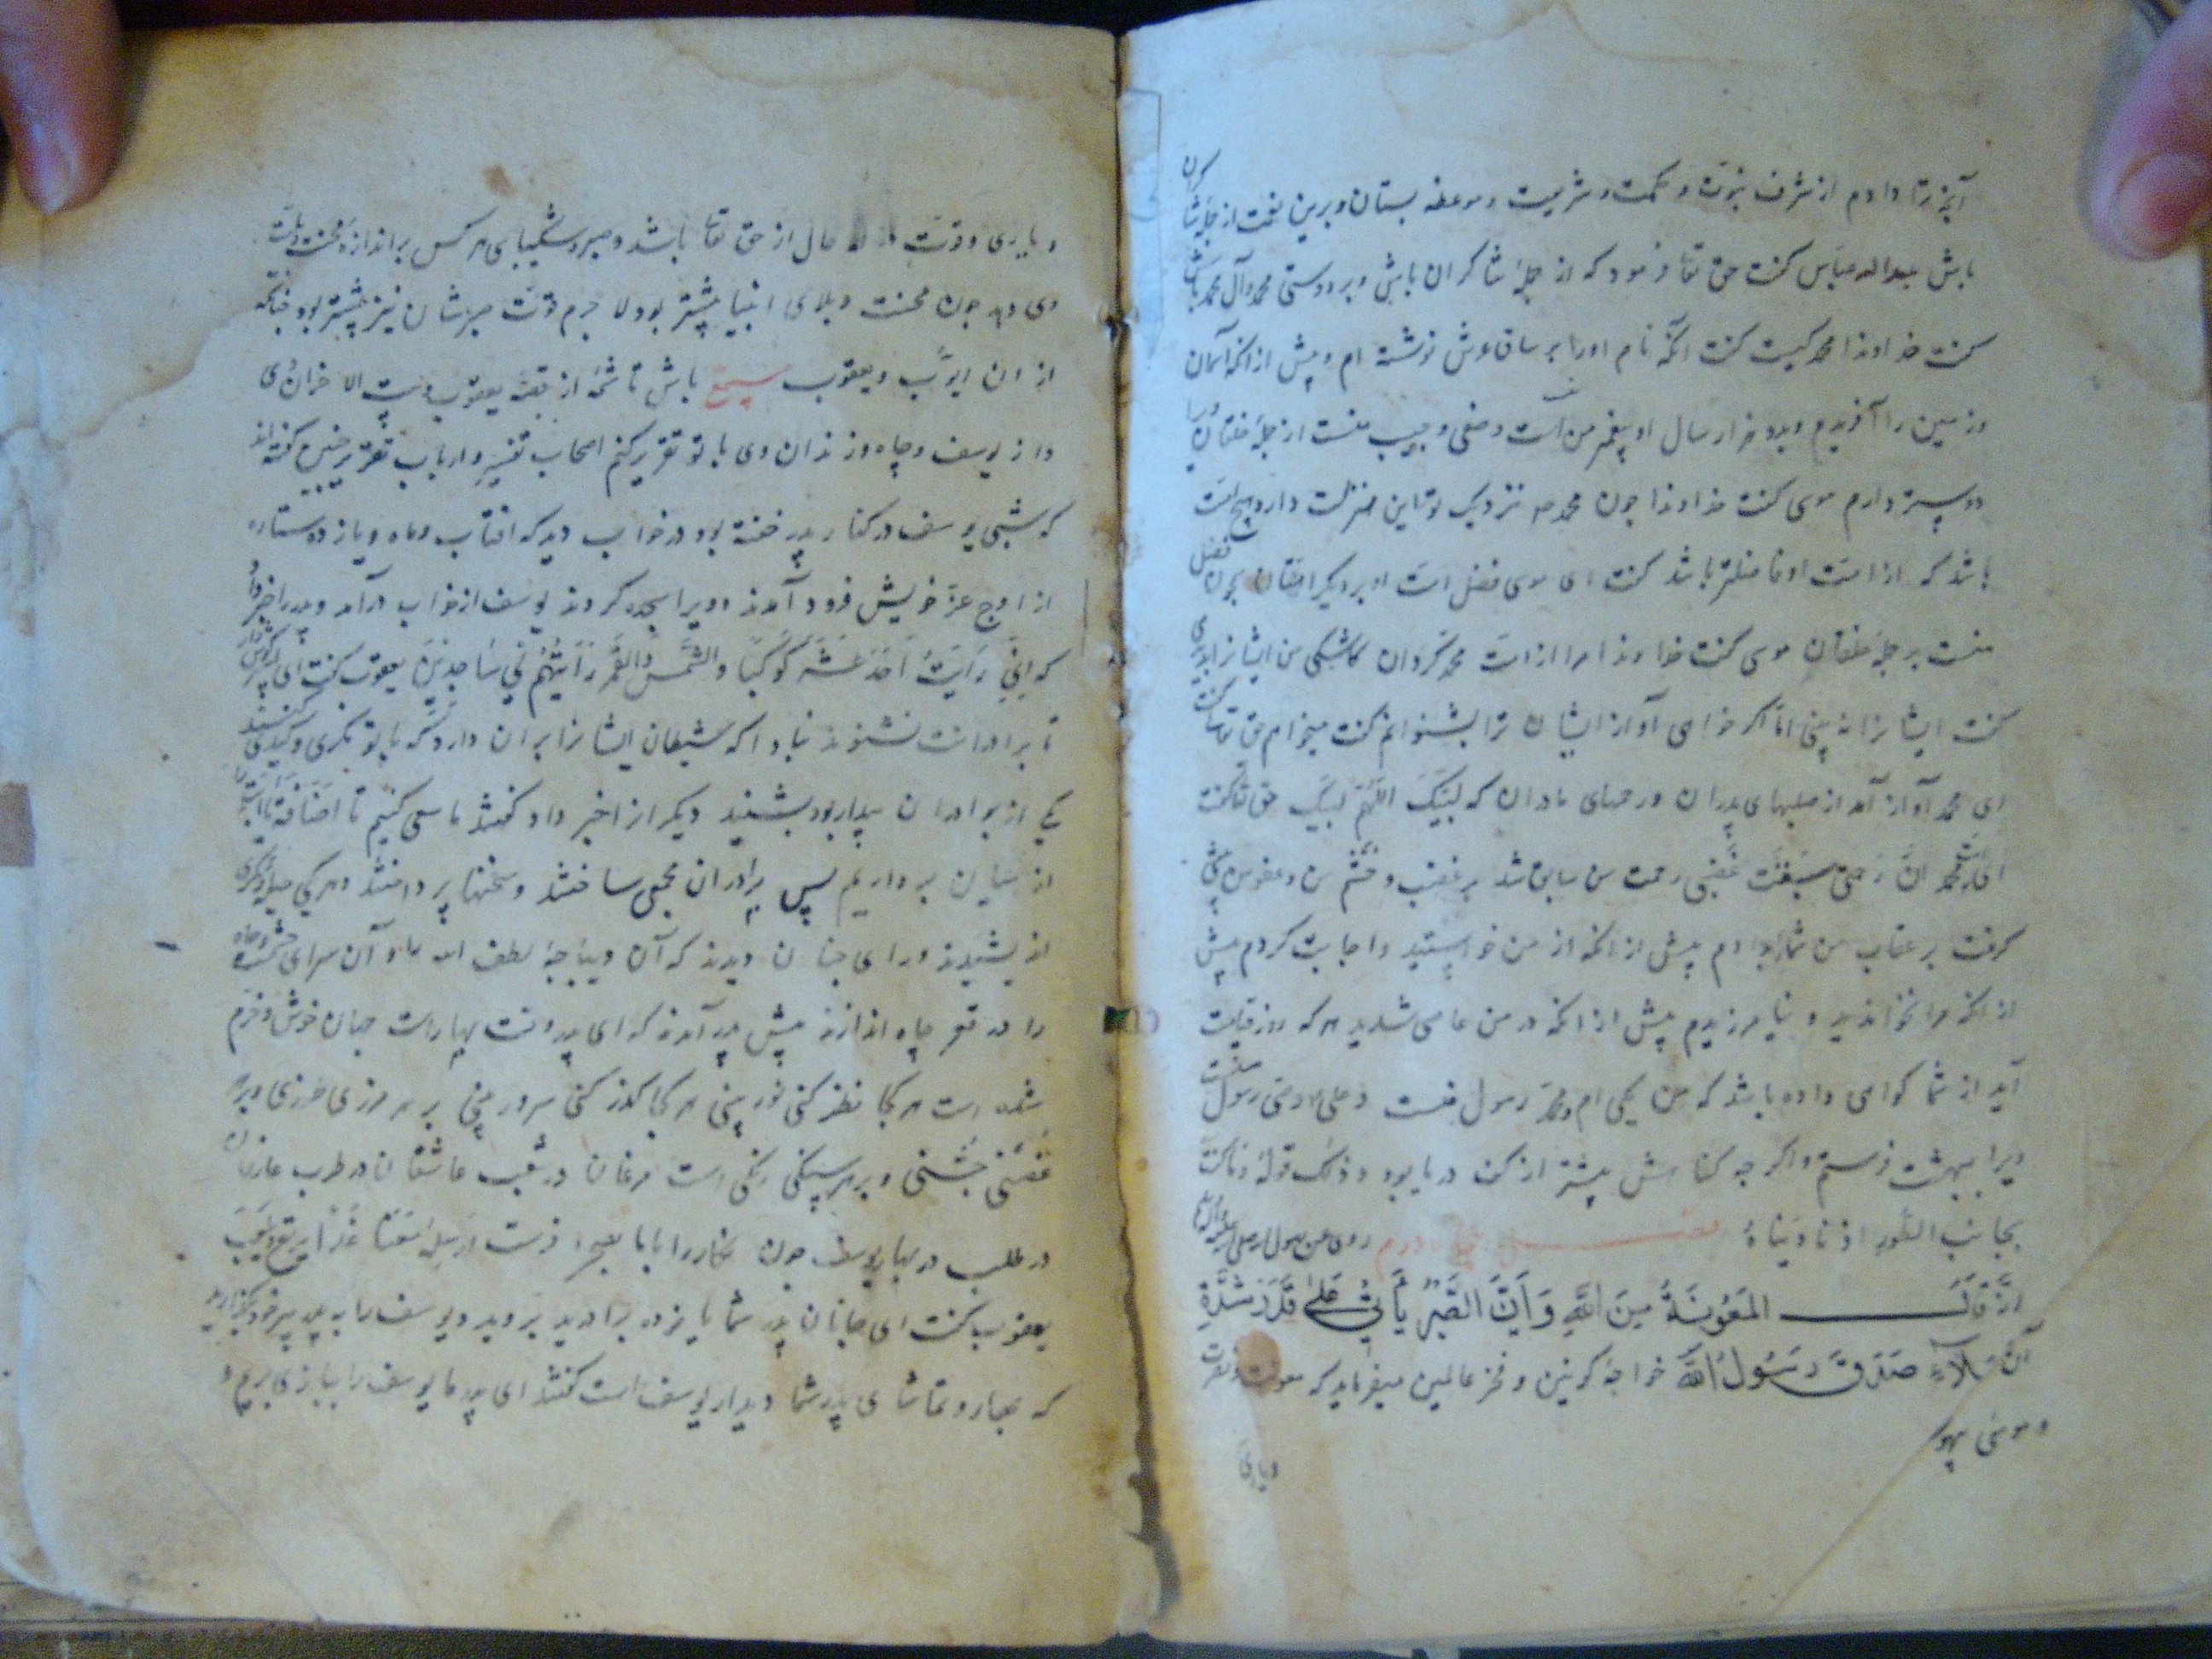 آنچه ترا دادم از شرف نبوت و حکمت و شریعت و موعظه بستان و برین نعمت از جمله شاکران
باش عبدالله عباس گفت حق تعا فرمود که از جمله شاکران باش و بر دوستی محمد و آل محمد باش
گفت خداوندا محمد کیست گفت آنکه نام او را بر ساق عرش نوشته ام و پیش از آنکه آسمان
و زمین را آفریدم بدو هزار سال او پیغمبر من است و صفی و حبیب منست از جمله خلقان ویرا
دوستر دارم موسی گفت خداوندا چون محمد نزدیک تو این منزلت دارد هیچ امت
باشد که از امت او فاضلتر باشد گفت ای موسی فضل امت او بر دیگر امتان چون فضل
منست بر جمله خلقان موسی گفت خداوندا مرا از امت محمد گردان کاشکی من ایشانرا بدیدمی
گفت ایشانرا نه بینی اما اگر خواهی آواز ایشان ترا بشنوانم گفت میخواهم حق تعا گفت
ای محمد آواز آمد از صلبهای پدران و رحمهای مادران که لبیک اللهم لبیک حق تعا گفت
امة محمد ان رحمتی سبقت غضبی رحمت من سابق شد بر غضب و خشم من و عفو من پیشی
گرفت بر عتاب من شما را بدادم پیش از آنکه از من خواستید و اجابت کردم پیش
از آنکه مرا بخواندید و بیامرزیدم پیش از آنکه در من عاصی شدید هر که روز قیامت
آید از شما گواهی داده باشد که من یکی ام و محمد رسول منست و علی وصی رسول منست
ویرا ببهشت فرستم و اگر چه گناهش بیشتر از کف دریا بود و ذلک قوله و ما کنت
بجانب الطور اذ نادیناه دوم روی عن رسول الله صلی الله علیه و آله
انه قال المعونة من الله و ان الصبر یأتی علی قدر شدة
البلاء صدق رسول الله خواجه کونین و فخر عالمین میفرماید که معونت و نصرت
و یاری
و یاری و قوت از حال از حق تعا باشد و صبر و شکیبایی هر کس بر اندازه محنت و بلیت
وی دهد چون محنت و بلای انبیا بیشتر بود لا جرم قوت صبرشان نیز بیشتر بود چنانکه
از ان ایوب و یعقوب سمیع باش تا شمه از قصه یعقوب و بیت الاحزان وی
و از یوسف و چاه و زندان وی با تو تقریر کنم اصحاب تفسیر و ارباب تقریر چنین گفته اند
که شبی یوسف در کنار پدر خفته بود در خواب دید که افتاب و ماه و یازده ستاره
از اوج عز خویش فرود آمدند و ویرا سجده کردند یوسف از خواب درآمد و پدر را خبر داد
که انی رأیت احد عشر کوکبا والشمس والقمر رأیتهم لی ساجدین یعقوب گفت ای پسر گوش دار
تا برادرانت نشنوند مبادا که شیطان ایشانرا بر ان دارد که با تو مکری و کیدی کنند
یکی از برادران بیدار بود بشنید دیگرانرا خبر داد گفتند ما سعی کنیم تا
از میان برداریم پس برادران مجمعی ساختند و سخنها پرداختند و هر یکی حیله و مکری
اندیشیدند و رای چنان دیدند که آن دیباجه لطف اله را و آن
را در قعر چاه اندازند پیش پدر آمدند که ای پدر وقت بهارست جهان خوش و خرم
شده است هر کجا نظر کنی نور بینی هر کجا گذر کنی سرور بینی بر هر مرزی خرزی و بر هر
غصنی جشنی و بر هر سنگی رنگی است مرغان در شغب عاشقان در طرب عارفان
در طلب در بهار یوسف چون نگار را با ما بصحرا فرست ارسله معنا غدا یرتع و یلعب
یعقوب گفت ای جانان پدر شما یازده برادرید بروید و یوسف را به پدر پیر خود بگذارید
که بهار و تماشای پدر شما دیدار یوسف است گفتند ای پدر ما یوسف را ببازی بریم و